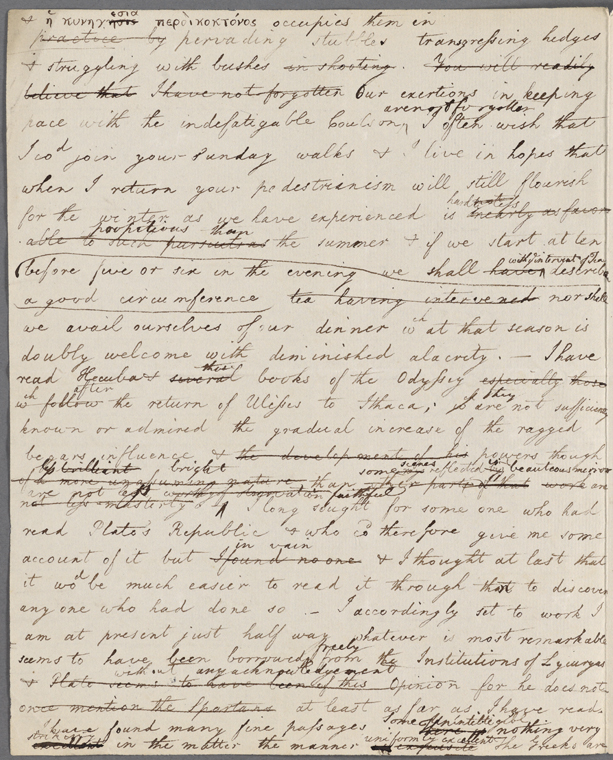 & ἡ κυνηγεσία περδικοκτόνος occupies them in
practice by pervading stubbles transgressing hedges
& struggling with bushes in shooting. You will readily
believe that I have not forgotten Our exertions in keeping
pace with the indefatigable Coulson, are not forgotten I often wish that
I wod join your Sunday walks & I live in hopes that
when I return your pedestrianism will still flourish
for the winter as we have experienced is hardly less nearly as favor
able to such pursuits as propitious than the summer & if we start at ten
before five or six in the evening we shall have with intervent of tea describe
a good circumference tea having intervened nor shall
we avail ourselves of our dinner wch at that season is
doubly welcome with diminished alacrity. — I have
read Hecuba & several three books of the Odyssey especially those
wch follow after the return of Ulisses to Ithaca; they are not sufficiently
known or admired the gradual increase of the ragged
beggars influence & the development of his powers though
less brilliant bright some scenes reflected in beauteous mirror
of a more unassuming nature, than other parts of that work are
are not less worthy of admiration faithful
not less masterly. I long sought for some one who had
read Plato's Republic & who cd therefore give me some
account of it but in vain I found no one & I thought at last that
it wod be much easier to read it through than to discover
any one who had done so — I accordingly set to work I
am at present just half way whatever is most remarkable
seems to have been borrowed freely from the Institutions of Lycurgus
& Plato seems to have been of this without any acknowledgement Opinion for he does not
once mention the Spartans at least as far as I have read.
I have found many fine passages some unintelligible there is nothing very
striking excellent in the matter the manner uniformly excellent is exquisite The Greeks are